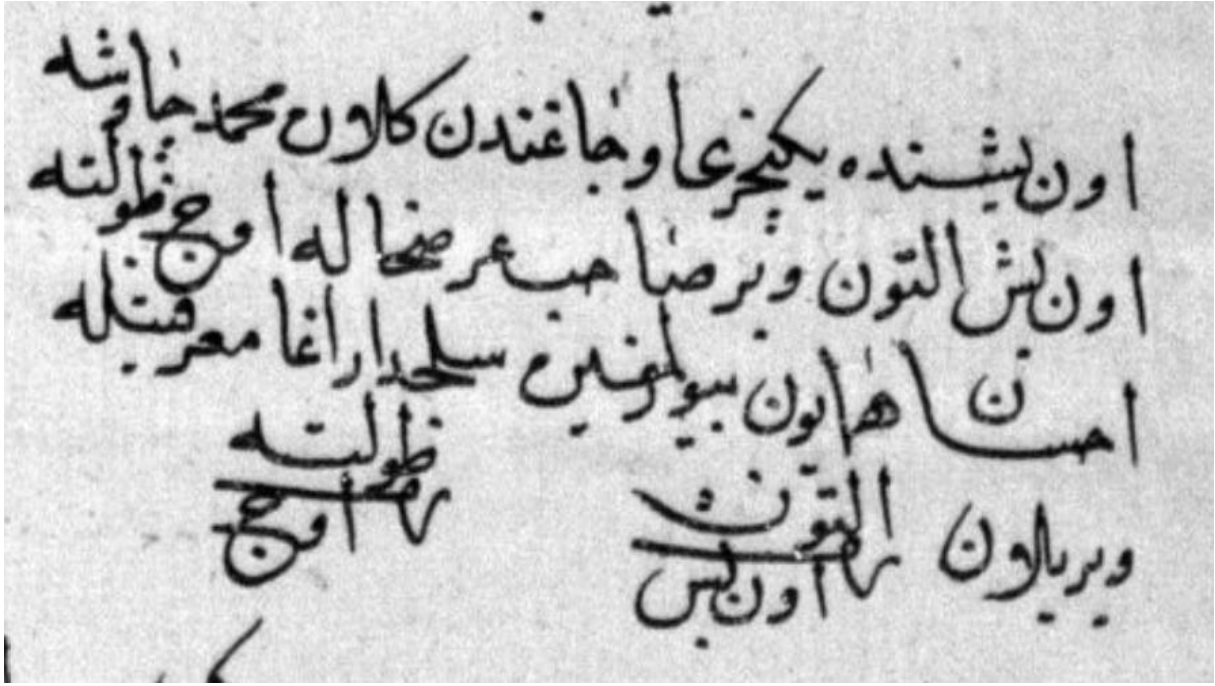 اون بشنده یکیچری اوجاغندن کلان محمد چاوشه
اون بش التون وبر صاحب عرضحاله اوچ طولته
احسان همایون بیورلمغین سلحدار اغا معرفتیله
ویریلان التون طولته
اون بش اوچ